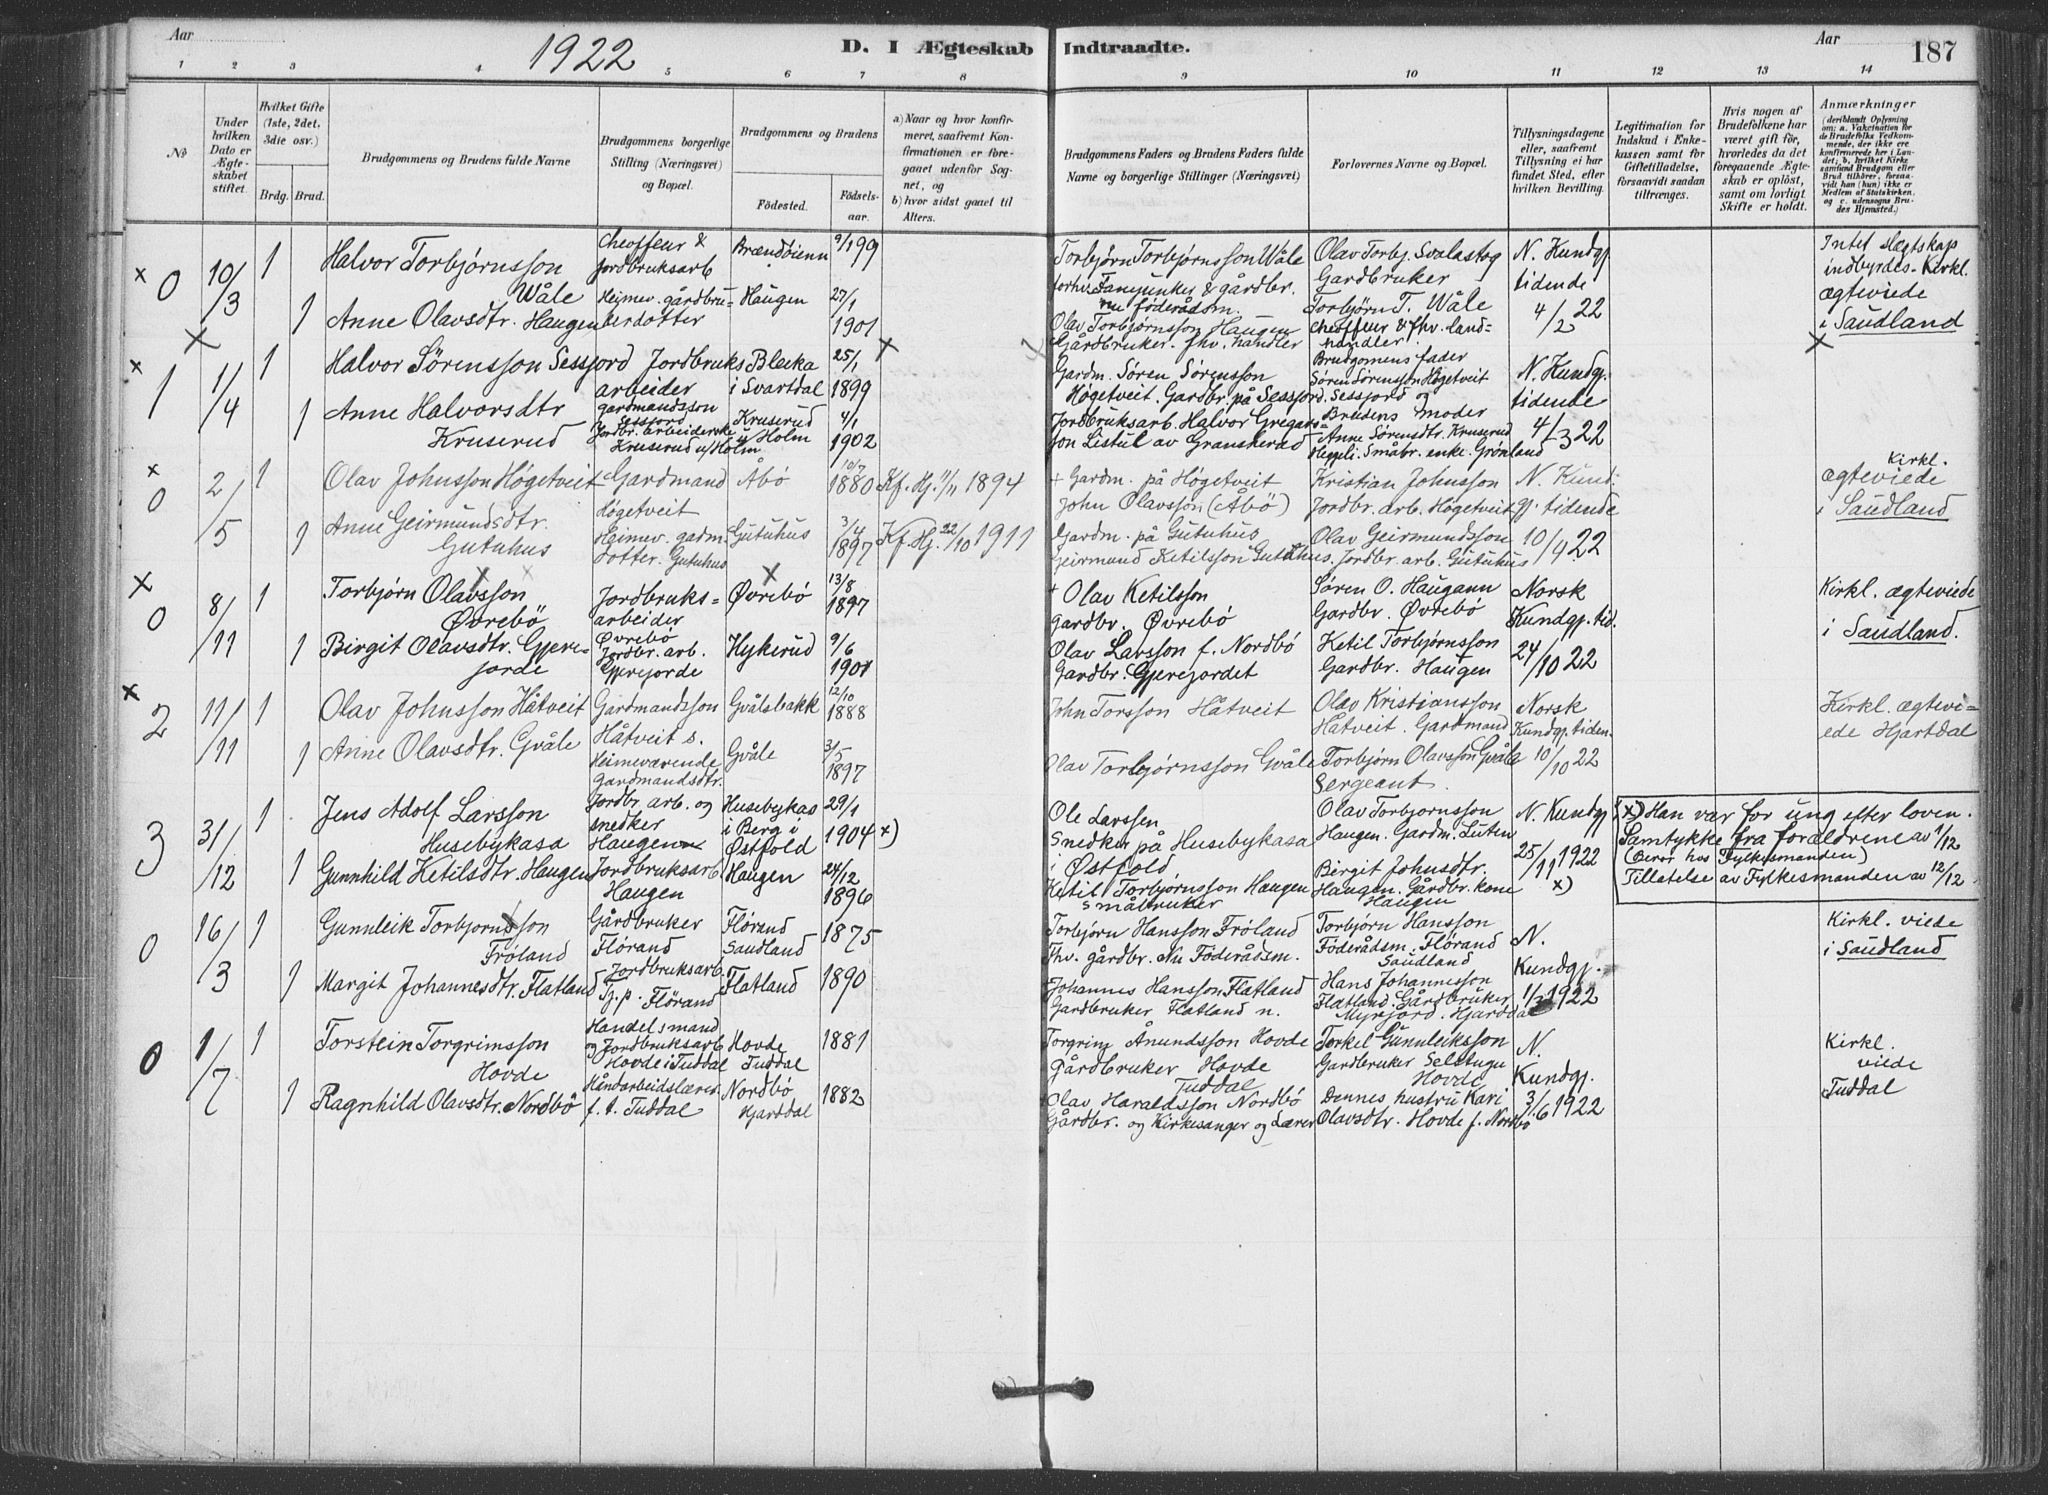 Aar
1922
D. I Ægteskab Indtraadte.
Aar
187
1 2 3 4 5 6 7 8 9 10 11 12 13 14
No
Under hvilken Dato er Ægteskabet stiftet.
Hvilket Gifte (1ste, 2det, 3die osv.)
Brdg. Brud.
Brudgommens og Brudens fulde Navne
Brudgommens borgerlige Stilling (Næringsvei) og Bopæl.
Brudgommens og Brudens
Fødested.
Fødselsaar.
a) Naar og hvor konfirmeret, saafremt Konfirmationen er foregaaet udenfor Sognet, og
b) hvor sidst gaaet til Alters.
Brudgommens Faders og Brudens Faders fulde Navne og borgerlige Stillinger (Næringsvei)
Forlovernes Navne og Bopæl.
Tillysningsdagene eller, saafremt Tillysning ei har fundet Sted, efter hvilken Bevilling.
Legitimation for Indskud i Enkekassen samt for Giftetilladelse, forsaavidt saadan tiltrænges.
Hvis nogen af Brudefolkene har været gift før, hvorledes da det foregaaende Ægteskab er opløst, samt om lovligt Skifte er holdt.
Anmærkninger
(deriblandt Oplysning om: a. Vakcination for de Brudefolks Vedkommende, der ikke ere konfirmerede her i Landet; b. hvilket Kirkesamfund Brudgom eller Brud tilhører, forsaavidt han (hun) ikke er Medlem af Statskirken, og c. udensogns Brudes Hjemsted.)
x 0 10/3 1
Halvor Torbjørnsson Wåle
Cheoffeur & Jordbruksarb
Brændöienn
9/1 99
Torbjörn Torbjørnsson Wåle
forhv. Fanejunker & gårdbr. nu föderådsm.
Olav Torbj. Svalastog
Gardbruker
N. Kundgj tidende
4/2 22
Intet slægtskap indbyrdes. Kirkl. ægteviede i Saudland
1 Anne Olavsdtr. Haugen
Heimev. gårdbrukerdotter
Haugen
27/1 1901
Olav Torbjørnsson Haugen
Gårdbruker. fhv. handler
Torbjørn T. Wåle
Cheoffeur & fhv. landhandler.
x 1 1/4 1
Halvor Sörensson Sessjord
Jordbruks arbeider
gardmandsson Sessjord
Blecka i Svartdal
25/1 1899
x
Gardm. Sören Sörensson
Högetveit. Gardbr. på Sessjord.
Brudgomens fader
Sören Sörensson Högetveit
Sessjord og
N. Kundgj. tidende
4/3 22
x
1 Anne Halvorsdtr Kruserud
Jordbr. arbeiderske
Kruserud u/Holm
Kruserud u/Holm
4/1 1902
Jordbruksarb. Halvor Gregarsson Listul av Gransherad
Brudens moder
Anne Sörensdtr. Kruserud
Heggeli. Småbr. enke. Grönland
x 0 2/5 1
Olav Johnsson Högetveit
Gardmand Högetveit
Åbö
10/7 1880
Kf. Hj. 11/11 1894
+ Gardm. på Högetveit
John Olavsson (Åbö)
Kristian Johnsson
Jordbr. arb. Högetveit
N. Kundgj. tidende
10/4 22
Kirkl. ægteviede i Saudland
1 Anne Geirmundsdtr. Gutuhus
Heimev. gardm. dotter. Gutuhus
Gutuhus
3/4 1897
Kf. Hj. 22/10 1911
Gardm. på Gutuhus
Geirmund Ketilsson Gutuhus
Olav Geirmundsson
Jordbr. arb. Gutuhus
x 0 8/11 1
Torbjørn Olavsson Övrebö
Jordbruksarbeider Övrebö
Øvrebö
13/8 1897
+ Olav Ketilsson
Gardbr. Övrebö
Sören O. Haugann
Gardbr. Øvrebö
Norsk Kundgj. tid.
24/10 22
Kirkl. ægteviede i Saudland.
1 Birgit Olavsdtr. Gjerejorde
Jordbr. arb. Gjerejorde
Hykerud
9/6 1901
Olav Larsson f. Nordbö
Gardbr. Gjerejordet
Ketil Torbjørnsson
Gardbr. Haugen
x 2 11/11 1
Olav Johnsson Håtveit
Gardmandsson Håtveit s.
Gvålsbakk
12/10 1888
John Torsson Håtveit
Olav Kristiansson
Håtveit. Gardmand
Norsk Kundgj. tiden.
10/10 22
Kirkl. ægteviede Hjartdal
1 Anne Olavsdtr. Gvåle
Heimeværende gardmandsdtr.
Gvåle
3/5 1897
Olav Torbjørnsson Gvåle
Torbjørn Olavsson Gvåle
Sergeant.
3 31/12 1
Jens Adolf Larsson Husebykasa
Jordbr. arb. og snedker Haugen
Husebykas i Berg i Østfold
29/1 1904 x)
Ole Larssen
Snedker på Husebykasa i Østfold
Olav Torbjørnsson
Haugen. Gardm. Luten
N. Kundgj
25/11 1922
x)
x) Han var for ung efter loven.
Samtykke fra foræld­rene av 1/12
(Beror hos Fylkesmanden)
Tillatelse av Fylkesmanden av 12/12
1 Gunnhild Ketilsdtr. Haugen
Jordbruksarb. Haugen
Haugen
24/12 1896
Ketil Torbjørnsson Haugen
småbruker
Birgit Johnsdtr.
Haugen. Gårdbr. kone Haugen
0 16/3 1
Gunnleik Torbjørnsson Fröland
Gårdbruker Flörand
Flörand Saudland
1875
Torbjørn Hansson Fröland
Fhv. gårdbr. Nu Föderådsm.
Torbjørn Hansson
Föderådsm. Flörand Saudland
N. Kundgj.
1/3 1922
Kirkl. viede i Saudland
1 Margit Johannesdtr. Flatland
Jordbruksarb. Tj. p. Flörand
Flatland
1890
Johannes Hansson Flatland
Gardbruker Flatland n.
Hans Johannesson
Flatland. Gårdbruker
Myrjord. Hjartdal
0 1/7 1
Torstein Torgrimsson Hovde
Handelsmand og Jordbruksarb
Hovde i Tuddal
Hovde Tuddal
1881
Torgrim Ånundsson Hovde
gårdbruker Hovde Tuddal
Torkel Gunnleiksson
Gardbruker Selstugu Hovde
N. Kundgj.
3/6 1922
Kirkl. viede Tuddal
1 Ragnhild Olavsdtr. Nordbö
Håndarbeidslærer. f. t. Tuddal
Nordbö Hjartdal
1882
Olav Haraldsson Nordbö
Gårdbr. og Kirkesanger og Lærer
Dennes hustru Kari
Olavsdtr. Hovde f. Nordbö